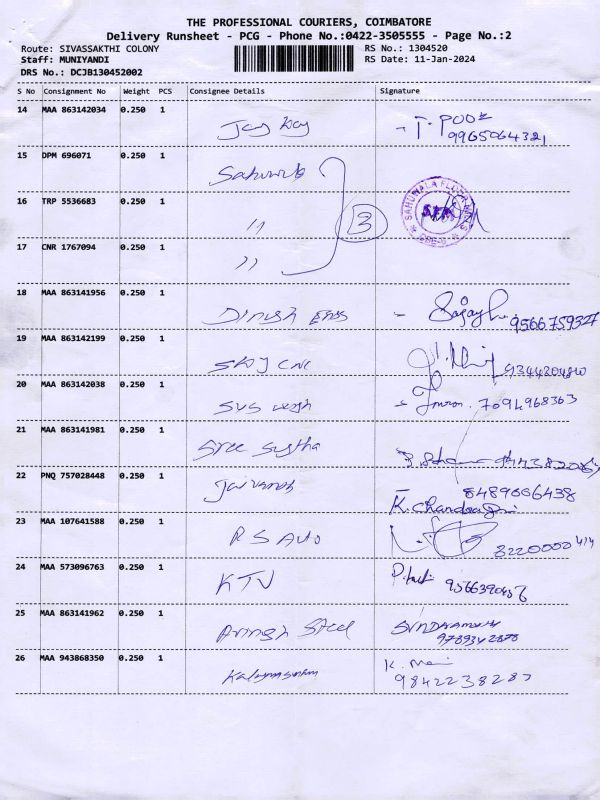 THE PROFESSIONAL COURIERS, COIMBATORE
Delivery Runsheet - PCG - Phone No.:0422-3505555 - Page No.:2
Route: SIVASSAKTHI COLONY RS No.: 1304520
Staff: MUNIYANDI RS Date: 11-Jan-2024
DRS No.: DCJB130452002
S No Consignment No Weight PCS Consignee Details Signature
14 MAA 863142034 0.250 1 Jay Kay - T. POO
9965064321
15 DPM 696071 0.250 1
16 TRP 5536683 0.250 1 " 3 SAHUWALA FLOOR
17 CNR 1767094 0.250 1 "
18 MAA 863141956 0.250 1 Dinesh Engg - 9566759327
19 MAA 863142199 0.250 1 CNC
20 MAA 863142038 0.250 1 SVS - 7094968363
21 MAA 863141981 0.250 1 Sree
22 PNQ 757028448 0.250 1 8489006438
K. Chandra
23 MAA 107641588 0.250 1 R S Auto 8220000414
24 MAA 573096763 0.250 1 KTV
25 MAA 863141962 0.250 1 Steel
9789342878
26 MAA 943868350 0.250 1 K. Mani